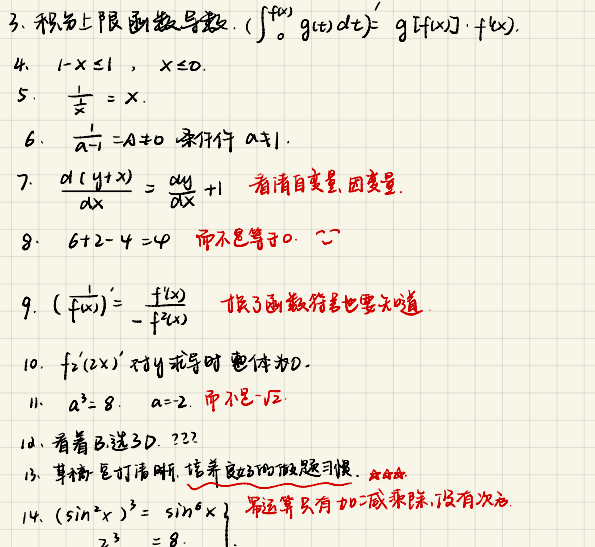 3. 积分上限函数导数. (∫₀^{f(x)} g(t) dt)' = g[f(x)]·f'(x).
4. 1-x≤1 , x≤0.
5. 1/(1/x) = x.
6. 1/(a-1) = A≠0 条件 a≠1.
7. d(y+x)/dx = dy/dx +1 看清自变量,因变量.
8. 6+2-4=4 而不是等于0.
9. (1/f(x))' = f'(x)/-f²(x) 换了函数符号也要知道
10. f₂'(2x)' 对y求导时 整体为0.
11. a³=8. a=-2. 而不是-√2.
12、看着B.选3D. ???
13、草稿 打清晰, 培养良好的做题习惯. ☆☆☆
14. (sin²x)³ = sin⁶x 幂运算只有加减乘除,没有次方
2³ =8.